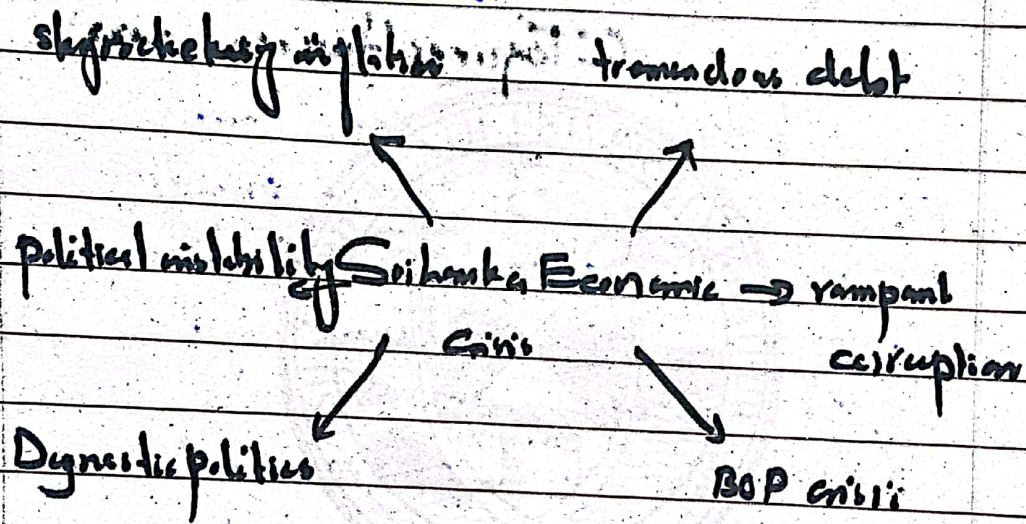 skyrocketing inflation tremendous debt
political instability Srilanka Economic → rampant
Crisis corruption
Dynastic politics
BOP crisis